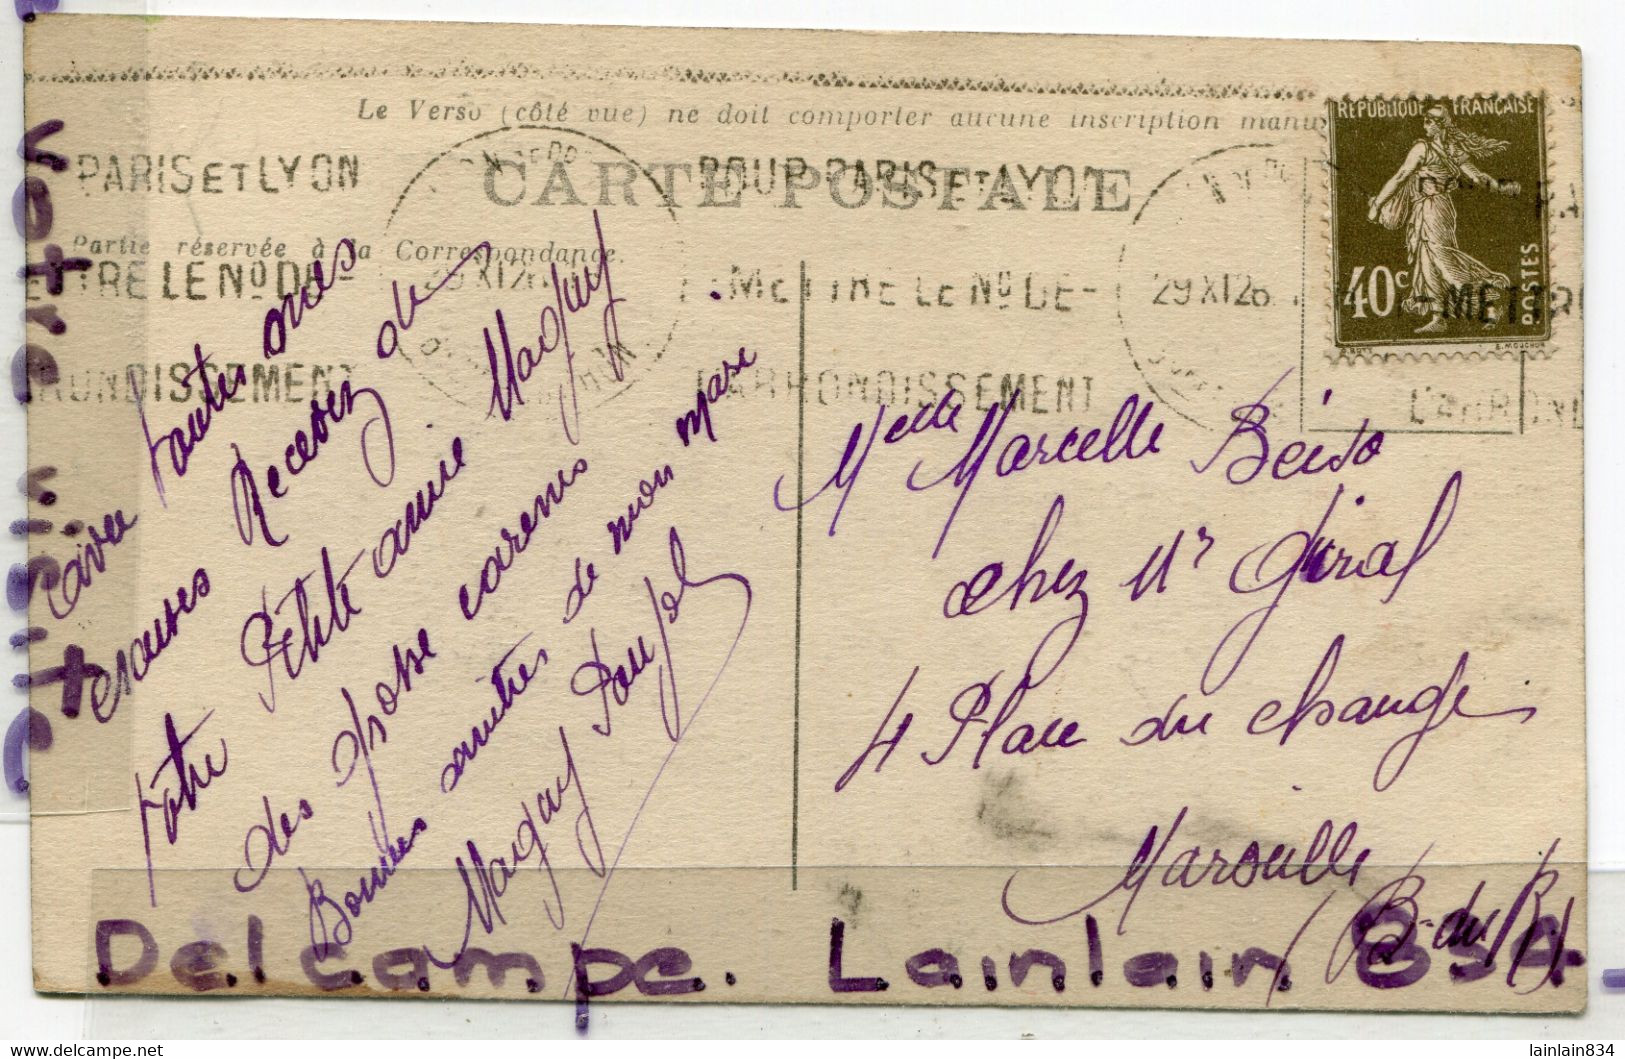 Le Verso (côté vue) ne doit comporter aucune inscription manu
CARTE POSTALE
Partie réservée à la Correspondance.
PARIS ET LYON
TRE LE No DE-
RONDISSEMENT
POUR PARIS ET LYON
METTRE LE No DE-
L'ARRONDISSEMENT
29 XI 26
29 XI 26
METTRE
L'ARROND
REPUBLIQUE FRANÇAISE
40c
POSTES
E. MOUCHON
avec toutes mes
excuses Recevez de
votre Petite amie Maguy
des grosse caresses
Bonnes amitiés de mon mari
Maguy Poujol
Melle Marcelle
chez Mr Giral
4 Place du change
Marseille
(B-du R)
Votre visite
Delcampe. Lainlain 834
www.delcampe.net
lainlain834